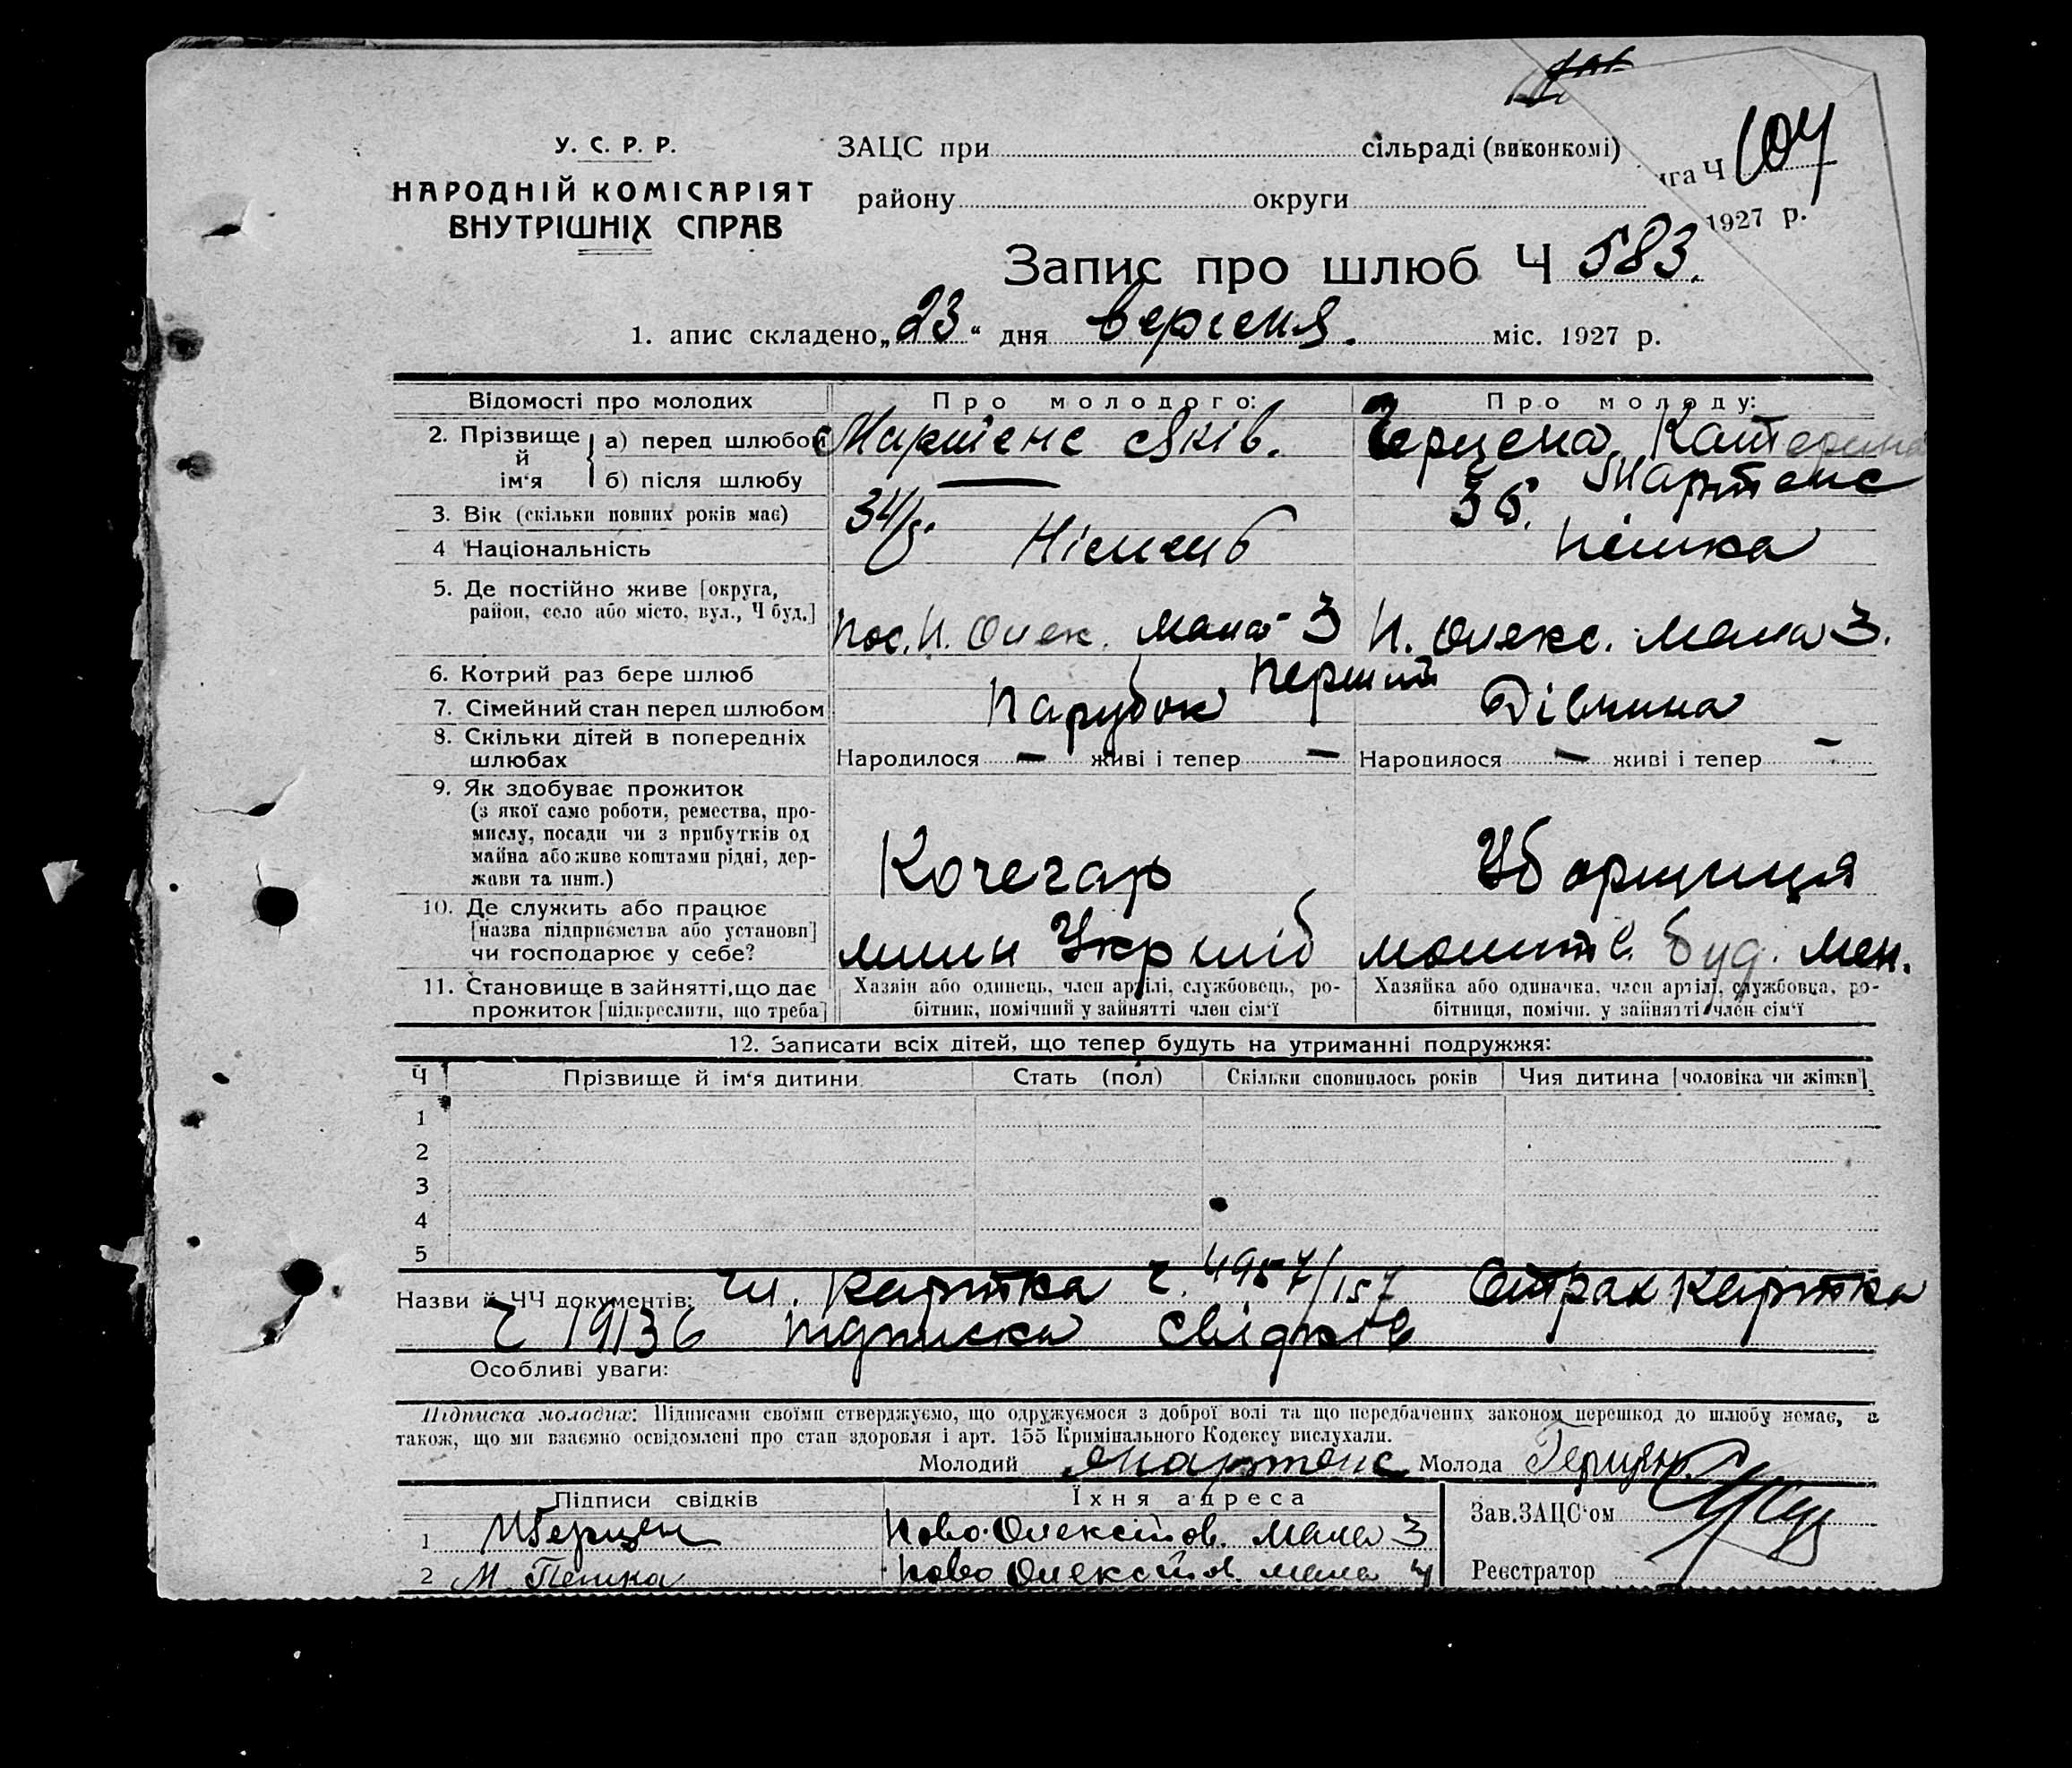 У. С. Р. Р.
НАРОДНІЙ КОМІСАРІЯТ
ВНУТРІШНІХ СПРАВ
ЗАЦС при сільраді (виконкомі)
району округи
ига Ч 104
1927 р.
Запис про шлюб Ч 583.
1. апис складено „23“ дня вересня. міс. 1927 р.
Відомості про молодих Про молодого: Про молоду:
2. Прізвище й ім'я а) перед шлюбом Мартенс Яків. Герцена Катерина
б) після шлюбу — Мартенс
3. Вік (скільки повних років має) 34/5. 36.
4 Національність Німець Німка
5. Де постійно живе [округа,
район, село або місто, вул., Ч буд.] пос. Н. Олек. мала 3 Н. Олекс. мала 3.
6. Котрий раз бере шлюб Перший
7. Сімейний стан перед шлюбом Парубок Дівчина
8. Скільки дітей в попередніх
шлюбах Народилося — живі і тепер — Народилося — живі і тепер —
9. Як здобуває прожиток
(з якої само роботи, ремества, про-
мислу, посади чи з прибутків од
майна або живе коштами рідні, дер-
жави та инш.) Кочегар Уборщиця
10. Де служить або працює
[назва підприємства або установи]
чи господарює у себе? млин Укрхліб буд. мен.
11. Становище в зайнятті, що дає
прожиток [підкреслити, що треба]
Хазяїн або одинець, член артілі, службовець, ро-
бітник, помічний у зайнятті член сім'ї
Хазяйка або одиначка, член артілі, службовца, ро-
бітниця, помічн. у зайнятті член сім'ї
12. Записати всіх дітей, що тепер будуть на утриманні подружжя:
Ч Прізвище й ім'я дитини Стать (пол) Скільки сповнилось років Чия дитина [чоловіка чи жінки]
1
2
3
4
5
Назви й ЧЧ документів: чл. картка ч. 4957/157 Страх картка
ч 19136 підписка свідків
Особливі уваги:
Підписка молодих: Підписами своїми стверджуємо, що одружуємося з доброї волі та що передбачених законом перешкод до шлюбу немає, а
також, що ми взаємно освідомлені про стан здоровля і арт. 155 Кримінального Кодексу вислухали.
Молодий Мартенс Молода Герцен
Підписи свідків Їхня адреса Зав. ЗАЦС'ом
1 Герцен Ново-Олексїтов. мала 3
2 М. Пенка Ново Олексїтов. мала 4 Реєстратор